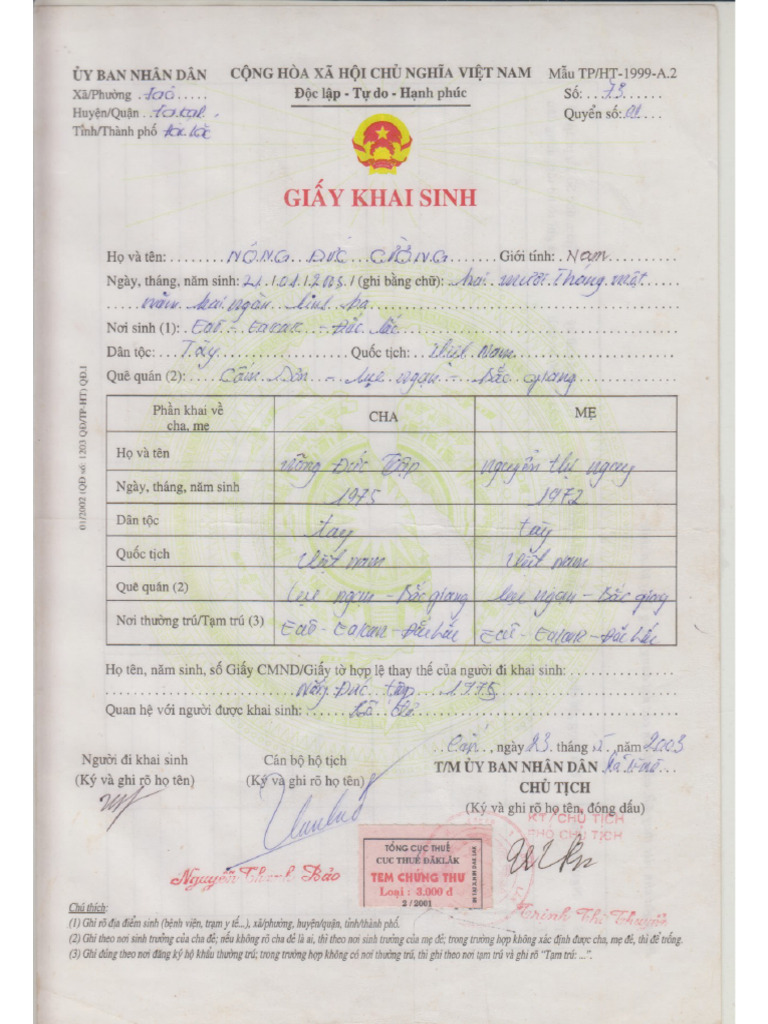 ỦY BAN NHÂN DÂN
CỘNG HÒA XÃ HỘI CHỦ NGHĨA VIỆT NAM
Mẫu TP/HT-1999-A.2
Xã/Phường
Độc lập - Tự do - Hạnh phúc
Số: 73
Huyện/Quận
Quyển số: 01
Tỉnh/Thành phố
GIẤY KHAI SINH
Họ và tên: NÔNG ĐỨC CƯỜNG Giới tính: Nam
Ngày, tháng, năm sinh: /01/2003 (ghi bằng chữ): Hai mươi tháng một
năm hai ngàn linh ba
Nơi sinh (1): Eaô - Eakar - Đắc Lắc
Dân tộc: Tày Quốc tịch: Việt Nam
Quê quán (2): Cấm Sơn - Lục ngạn - Bắc giang
01/2002 (QĐ số: 1203 QĐ/TP-HT) QĐ.I
Phần khai về cha, mẹ
CHA
MẸ
Họ và tên Nông Đức Tập Nguyễn thị
Ngày, tháng, năm sinh 1975 1972
Dân tộc tay tày
Quốc tịch Việt nam Việt nam
Quê quán (2) Lục ngạn - Bắc giang Lục ngạn - Bắc giang
Nơi thường trú/Tạm trú (3) Eaô - Eakar - Đắc Lắc Eaô - Eakar - Đắc Lắc
Họ tên, năm sinh, số Giấy CMND/Giấy tờ hợp lệ thay thế của người đi khai sinh:
Nông Đức tập 1975
Quan hệ với người được khai sinh: Bố đẻ
ngày 23 tháng năm 2003
Người đi khai sinh
Cán bộ hộ tịch
T/M ỦY BAN NHÂN DÂN
(Ký và ghi rõ họ tên)
(Ký và ghi rõ họ tên)
CHỦ TỊCH
(Ký và ghi rõ họ tên, đóng dấu)
KT/CHỦ TỊCH
PHÓ CHỦ TỊCH
TỔNG CỤC THUẾ
CỤC THUẾ ĐĂKLĂK
TEM CHỨNG THƯ
Loại : 3.000 đ
2 / 2001
Nguyễn Thanh Bảo
Trinh Thi Thuyền
Chú thích:
(1) Ghi rõ địa điểm sinh (bệnh viện, trạm y tế...), xã/phường, huyện/quận, tỉnh/thành phố.
(2) Ghi theo nơi sinh trưởng của cha đẻ; nếu không rõ cha đẻ là ai, thì theo nơi sinh trưởng của mẹ đẻ; trong trường hợp không xác định được cha, mẹ đẻ, thì để trống.
(3) Ghi đúng theo nơi đăng ký hộ khẩu thường trú; trong trường hợp không có nơi thường trú, thì ghi theo nơi tạm trú và ghi rõ "Tạm trú: ...".